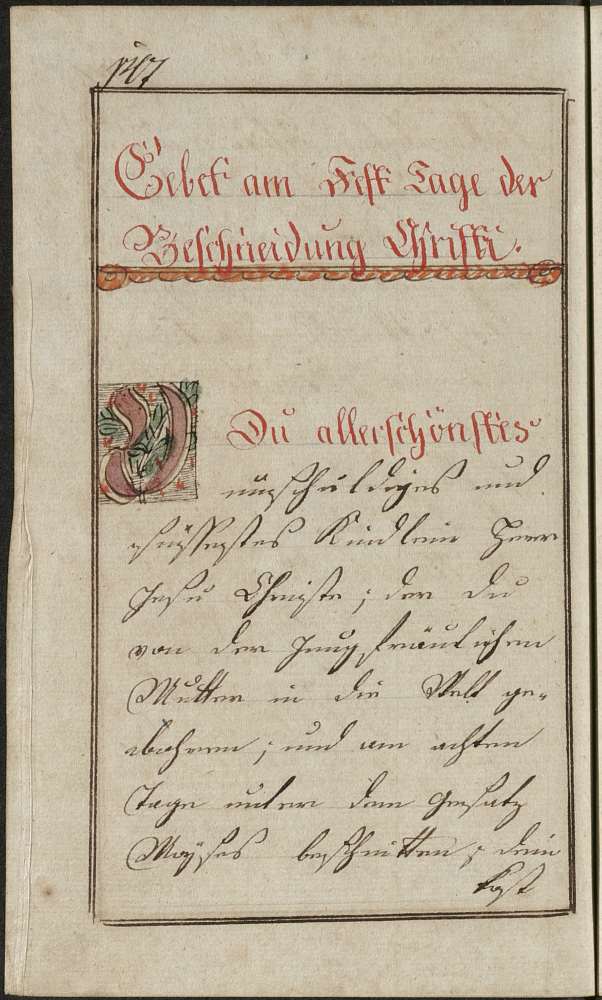 107
Gebet am Fest Tage der
Beschneidung Christi.
O Du allerschönstes
unschuldiges und
süssestes Kindlein Herr
Jesu Christe; der Du
von der Jungfräulichen
Mutter in die Welt ge-
bohren; und am achten
Tage unter dem Gesatz
Moÿses beschnitten, dein